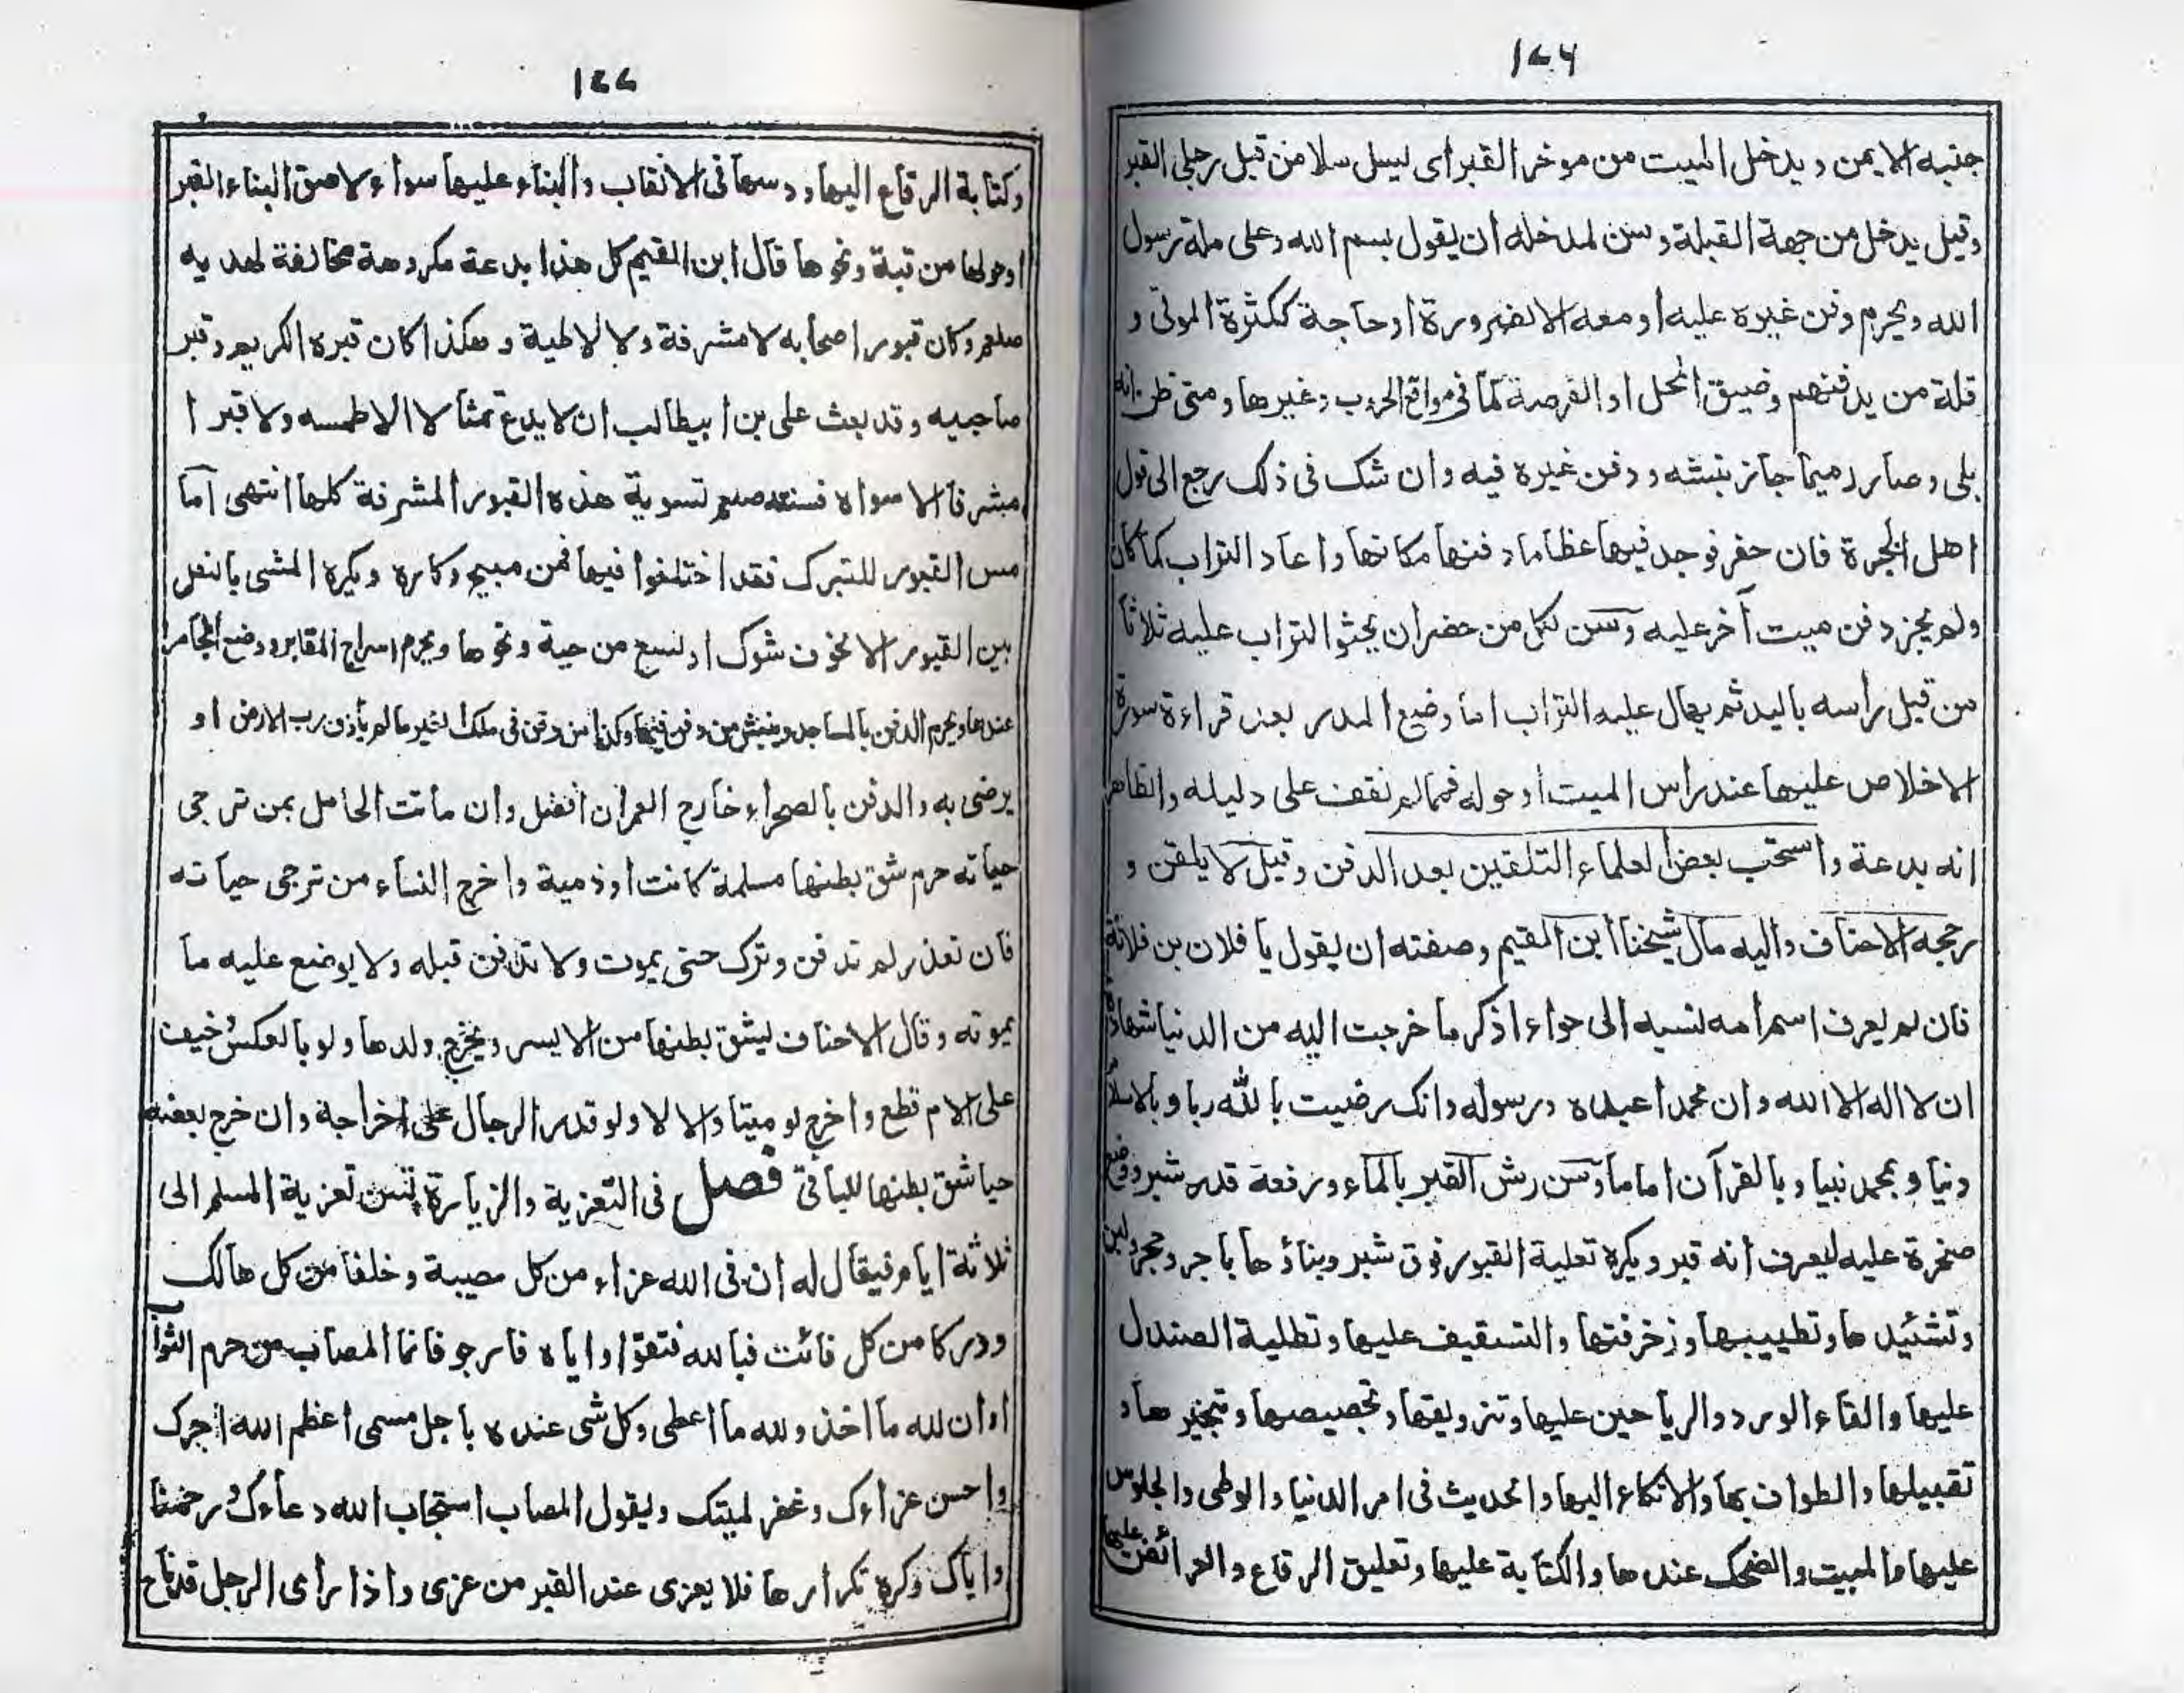 ١٧٦
جنبه الايمن ويدخل الميت من موخر القبر اى ليسل سلا من قبل رجلى القبر
وقيل يدخل من جهة القبلة وسن لمدخله ان يقول بسم الله وعلى ملة رسول
الله ويحرم دفن غيره عليه او معه الا لضرورة او حاجة ككثرة الموتى و
قلة من يدفنهم وضيق المحل او الفرصة كما فى مواقع الحروب وغيرها ومتى ظن انه
بلى وصار رميما جاز نبشه ودفن غيره فيه وان شك فى ذلك رجع الى قول
اهل الخبرة فان حفر فوجد فيها عظاما دفنها مكانها واعاد التراب كما كان
ولم يجز دفن ميت آخر عليه وسن لكل من حضر ان يحثوا التراب عليه ثلاثا
من قبل رأسه باليد ثم يهال عليه التراب اما وضع المدر بعد قراءة سورة
الاخلاص عليها عند راس الميت او حوله فمما لم نقف على دليله والظاهر
انه بدعة واستحب بعض العلماء التلقين بعد الدفن وقيل لا يلقن و
رجحه الاحناف واليه مال شيخنا ابن القيم وصفته ان يقول يا فلان بن فلانة
فان لم يعرف اسم امه نسبه الى حواء اذكر ما خرجت اليه من الدنيا شهادة
ان لا اله الا الله وان محمدا عبده ورسوله وانك رضيت بالله ربا وبالاسلام
دنيا وبمحمد نبيا وبالقرآن اماما وسن رش القبر بالماء ورفعه قدر شبر ووضع
صخرة عليه ليعرف انه قبر ويكره تعلية القبور فوق شبر وبناؤها باجر وحجر ولبن
وتشئيدها وتطييبها وزخرفتها والتسقيف عليها وتطلية الصندل
عليها والقاء الورد والرياحين عليها وتزويقها وتجصيصها وتبخيرها و
تقبيلها والطواف بها والاتكاء اليها والحديث فى امر الدنيا والوطى والجلوس
عليها والمبيت والضحك عندها والكتابة عليها وتعليق الرقاع والعرائض عليها
١٧٧
وكتابة الرقاع اليها ودسها فى الانقاب والبناء عليها سواء لاصق البناء القبر
او حولها من قبة ونحوها قال ابن القيم كل هذا بدعة مكروهة مخالفة لهديه
صلعم وكان قبور اصحابه لا مشرفة ولا لاطية وهكذا كان قبره الكريم وقبر
صاحبيه وقد بعث على بن ابيطالب ان لا يدع تمثالا الا طمسه ولا قبرا
مشرفا الا سواه فسنته صلعم تسوية هذه القبور المشرفة كلها انتهى اما
مس القبور للتبرك فقد اختلفوا فيها فمن مبيح وكاره ويكره المشى بالنعل
بين القبور الا لخوف شوك او لسع من حية ونحوها ويحرم اسراج المقابر ووضع المجامر
عندها ويحرم الدفن بالمساجد وينبش من دفن فيها وكذا من دفن فى ملك الغير ما لم يأذن رب الارض او
يرضى به والدفن بالصحراء خارج العمران افضل وان ماتت الحامل بمن ترجى
حياته حرم شق بطنها مسلمة كانت او ذمية واخرج النساء من ترجى حياته
فان تعذر لم تدفن وترك حتى يموت ولا تدفن قبله ولا يوضع عليه ما
يموته وقال الاحناف ليشق بطنها من الايسر ويخرج ولدها ولو بالعكس وخيف
على الام قطع واخرج لو ميتا والا لا ولو قدر الرجال على اخراجه وان خرج بعضه
حيا شق بطنها للباقى فصل فى التعزية والزيارة تسن تعزية المسلم الى
ثلاثة ايام فيقال له ان فى الله عزاء من كل مصيبة وخلفا من كل هالك
ودركا من كل فائت فبالله فتقوا واياه فارجو فانما المصاب من حرم الثواب
او ان لله ما اخذ ولله ما اعطى وكل شى عنده باجل مسمى اعظم الله اجرك
واحسن عزاءك وغفر لميتك ويقول المصاب استجاب الله دعاءك ورحمنا
واياك وكره تكرارها فلا يعزى عند القبر من عزى واذا رأى الرجل قد ناح